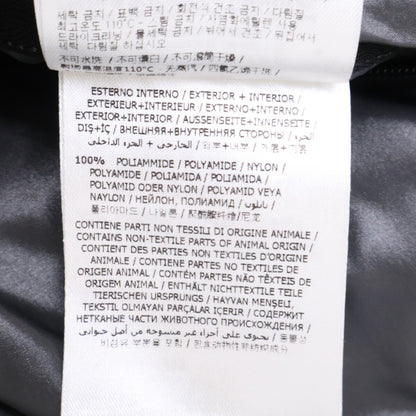 세탁 금지 / 표백 금지 / 회전식 건조 금지 / 다림질
드라이크리닝 /
不可水洗 / 不可漂白 / 不可滚筒干燥 /
110°C /
ESTERNO INTERNO / EXTERIOR + INTERIOR /
EXTERIEUR+INTERIEUR / EXTERNO+INTERNO /
EXTERIOR+INTERIOR / AUSSENSEITE+INNENSEITE /
DIŞ+İÇ / ВНЕШНЯЯ+ВНУТРЕННЯЯ СТОРОНЫ / الجزء
الخارجي + الجزء الداخلي /
100% POLIAMMIDE / POLYAMIDE / NYLON /
POLYAMIDE / POLIAMIDA / POLIAMIDA /
POLYAMID ODER NYLON / POLYAMID VEYA
NAYLON / НЕЙЛОН, ПОЛИАМИД / نايلون /
폴리아마드 / 나일론 / 聚酰胺纤维/尼龙
CONTIENE PARTI NON TESSILI DI ORIGINE ANIMALE /
CONTAINS NON-TEXTILE PARTS OF ANIMAL ORIGIN /
CONTIENT DES PARTIES NON TEXTILES D'ORIGINE
ANIMALE / CONTIENE PARTES NO TEXTILES DE
ORIGEN ANIMAL / CONTÉM PARTES NÃO TÊXTEIS DE
ORIGEM ANIMAL / ENTHÄLT NICHTTEXTILE TEILE
TIERISCHEN URSPRUNGS / HAYVAN MENŞELİ,
TEKSTİL OLMAYAN PARÇALAR İÇERİR / СОДЕРЖИТ
НЕТКАНЫЕ ЧАСТИ ЖИВОТНОГО ПРОИСХОЖДЕНИЯ /
يحتوي على أجزاء غير منسوجة من أصل حيواني /
비섬유 부분 포함 /